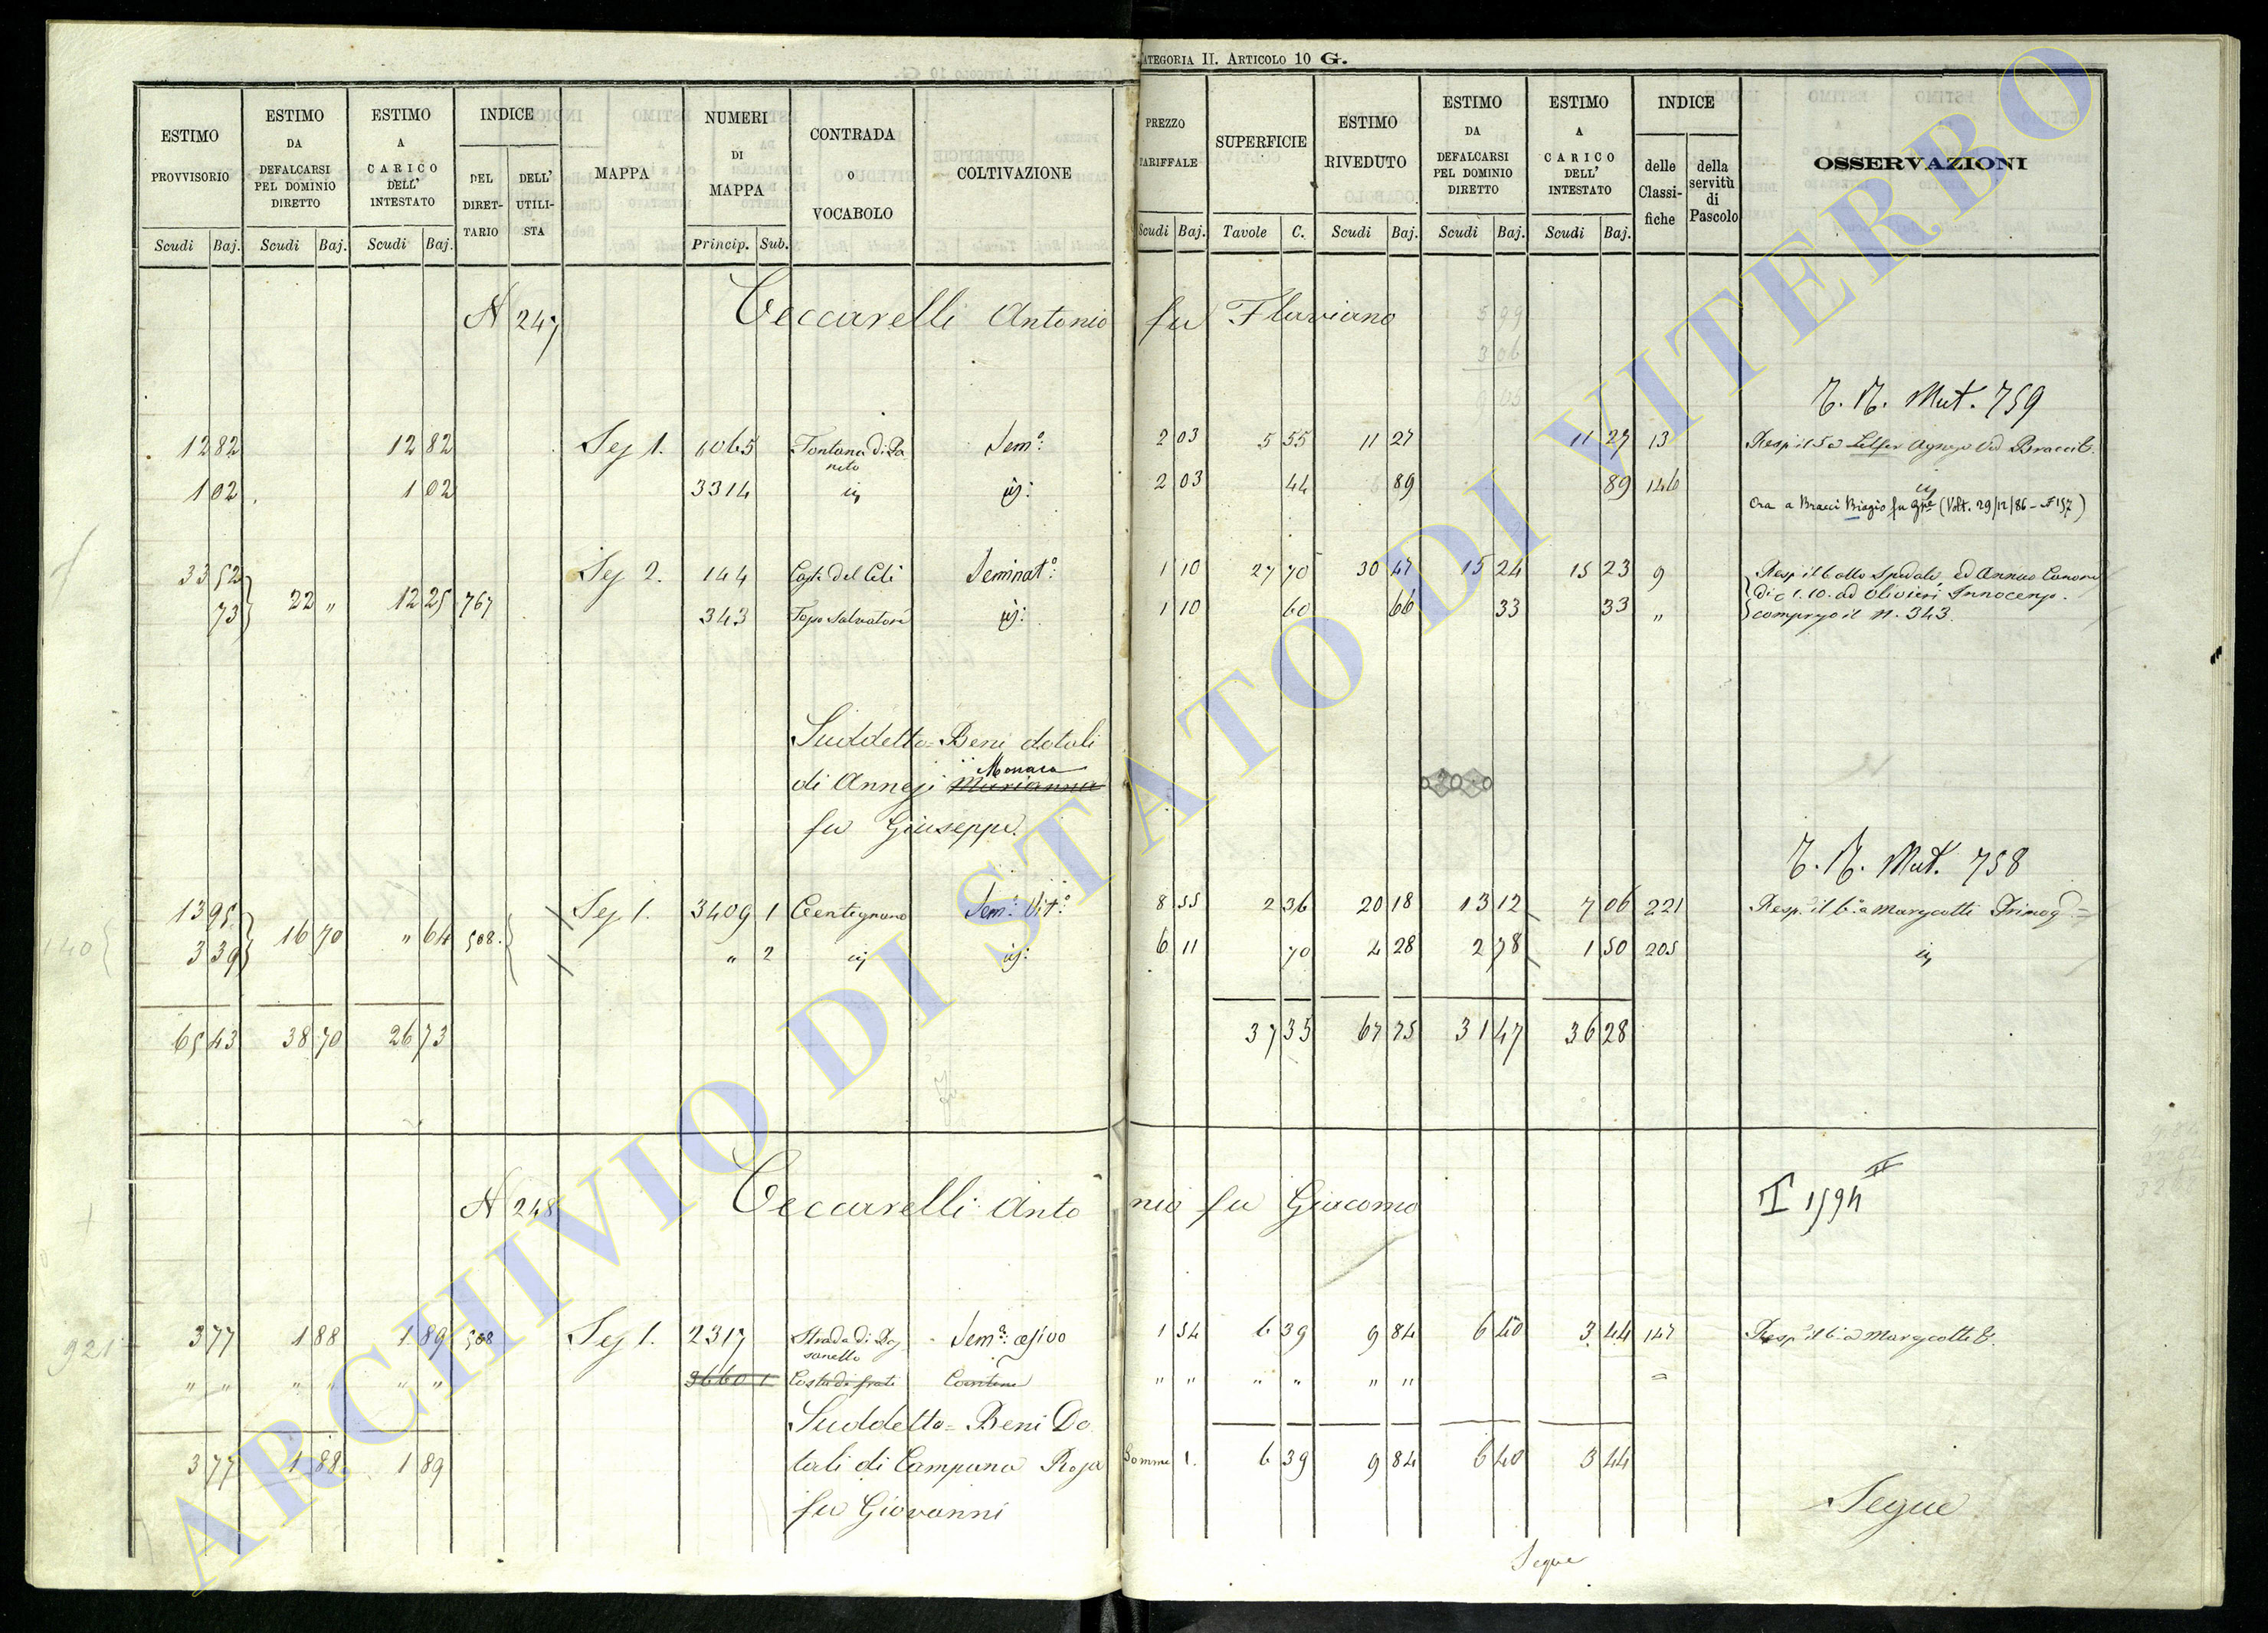 CATEGORIA II. ARTICOLO 10 G.
ESTIMO PROVVISORIO Scudi Baj.
ESTIMO DA DEFALCARSI PEL DOMINIO DIRETTO Scudi Baj.
ESTIMO A CARICO DELL' INTESTATO Scudi Baj.
INDICE DEL DIRETTARIO DELL' UTILISTA
MAPPA
NUMERI DI MAPPA Princip. Sub.
CONTRADA O VOCABOLO
COLTIVAZIONE
PREZZO TARIFFALE Scudi Baj.
SUPERFICIE Tavole C.
ESTIMO RIVEDUTO Scudi Baj.
ESTIMO DA DEFALCARSI PEL DOMINIO DIRETTO Scudi Baj.
ESTIMO A CARICO DELL' INTESTATO Scudi Baj.
INDICE delle Classifiche della servitù di Pascolo
OSSERVAZIONI
N 247 Ceccarelli Antonio fu Flaviano
Mut. 759
12 82 12 82 Sez 1. 1065 Fontana di Sem.o 2 03 5 55 11 27 11 27 13
1 02 1 02 3314 2 03 44 89 89 146
Ora a Bracci Biagio fu (Volt. 29/12/86 - N 157)
33 52 Sez 2. 144 Seminat.o 1 10 27 70 30 47 15 24 15 23 9
22 " 12 25 767
73 343 Salvatore 1 10 60 66 33 33 "
ed Annuo Canone
di 1.10. ad Olivieri Innocenzo.
compreso il N. 343.
Suddetto = Beni dotali
di Annesi Marianna
fu Giuseppe.
Mut. 758
13 95 Sez 1. 3409 1 Centignano Sem.o Vit.o 8 55 2 36 20 18 13 12 7 06 221
16 70 " 64 508.
3 39 " 2 6 11 70 4 28 2 78 1 50 205
65 43 38 70 26 73 37 35 67 75 31 47 36 28
N 248 Ceccarelli Antonio fu Giacomo
I 1594 II
3 77 1 88 1 89 508 Sez 1. 2317 Strada di Sem.o 1 54 6 39 9 84 6 40 3 44 147
" " " " " " 3660 1 Costa di frati " " " " " "
Suddetto = Beni Do
3 77 1 88 1 89 tali di Campana Rosa Somme 1. 6 39 9 84 6 40 3 44
fu Giovanni
Segue
Segue
ARCHIVIO DI STATO DI VITERBO